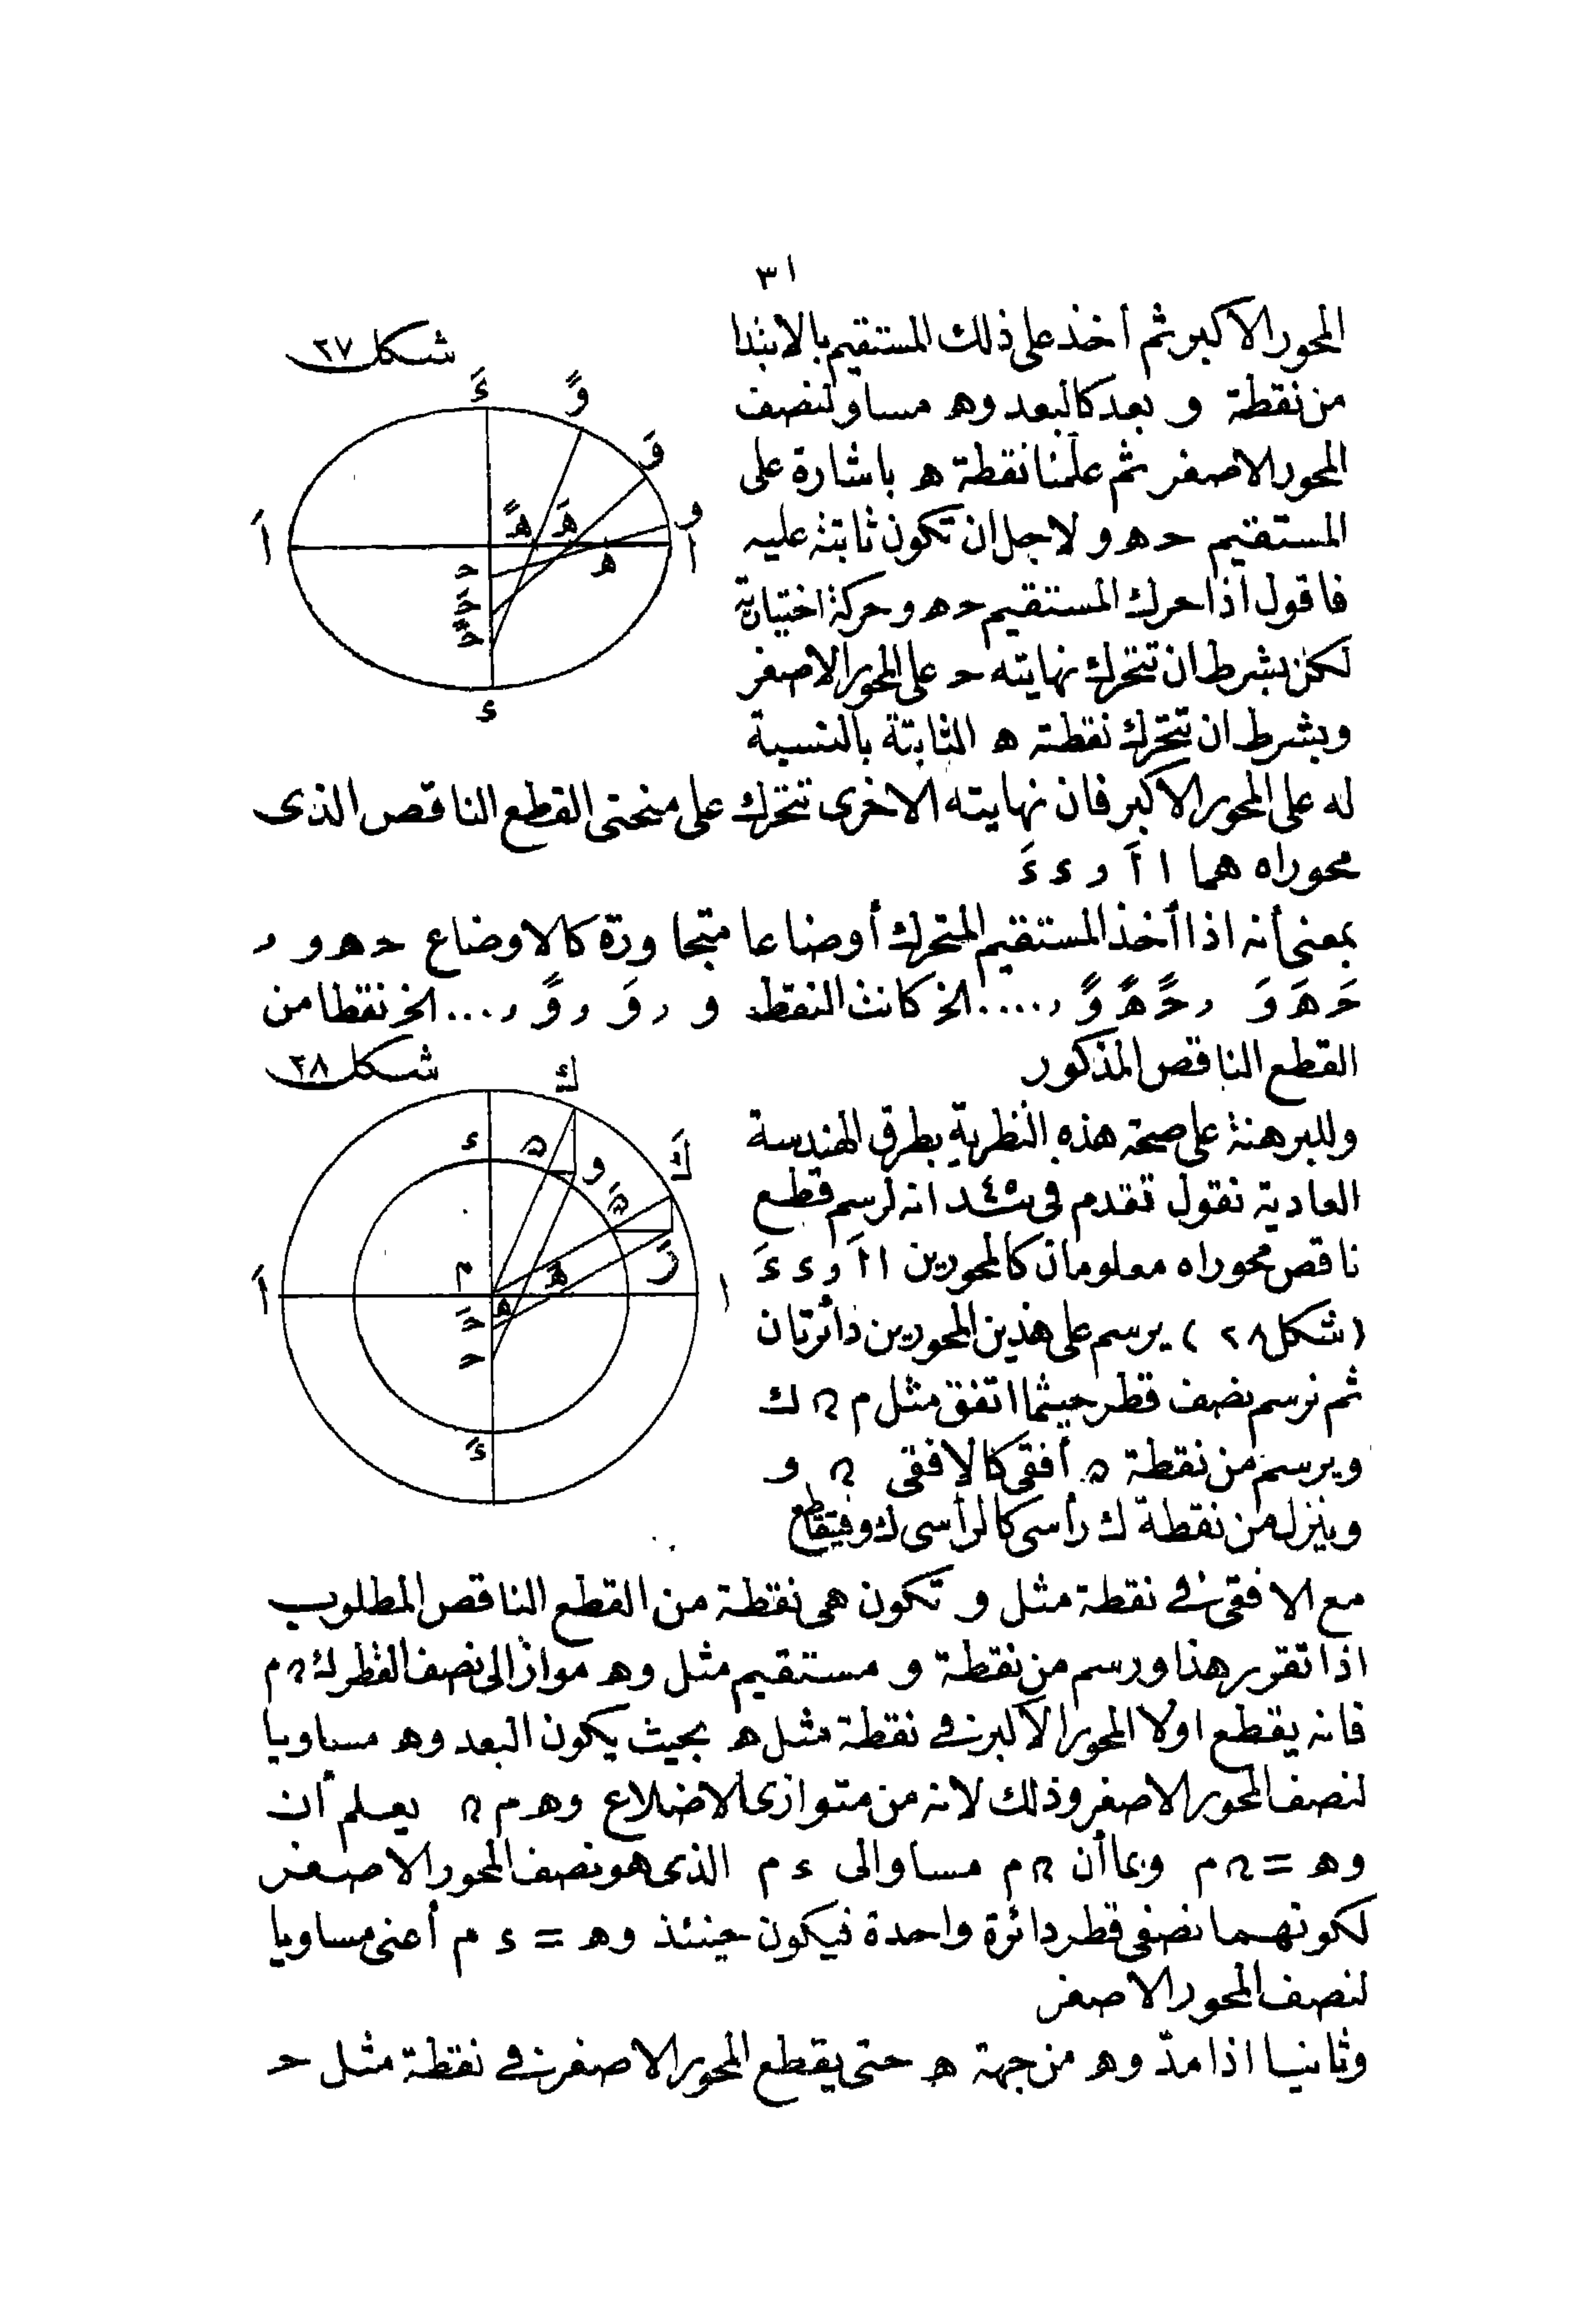 ٣١
المحور الاكبر ثم أخذ على ذلك المستقيم بالابتدا
من نقطة و بعد كالبعد وه مساو لنصف
المحور الاصغر ثم علمنا نقطة ه باشارة على
المستقيم حه و لاجل ان تكون ثابتة عليه
فاقول اذا حرك المستقيم حه و حركة اختيارية
لكن بشرط ان تتحرك نهايته ح على المحور الاصغر
وبشرط ان تتحرك نقطته ه الثابتة بالنسبة
له على المحور الاكبر فان نهايته الاخرى تتحرك على منحنى القطع الناقص الذى
محوراه هما ا أَ و ء ءَ
بمعنى أنه اذا أخذ المستقيم المتحرك أوضاعا متجاورة كالاوضاع حه و ,
حَ هَ وَ , حً هً وً , ..... الخ كانت النقط و , وَ , وً , ... الخ نقطا من
القطع الناقص المذكور
وللبرهنة على صحة هذه النظرية بطرق الهندسة
العادية نقول تقدم فى ٤٥ـند انه لرسم قطع
ناقص محوراه معلومان كالمحورين ا أَ و ء ءَ
(شكل ٢٨) يرسم على هذين المحورين دائرتان
ثم نرسم نصف قطر حيثما اتفق مثل م ن ك
ويرسم من نقطة ن أفقى كالافقى ن و
وينزل من نقطة ك رأسى كالرأسى ك و فيتقاطع
مع الافقى فى نقطة مثل و تكون هى نقطة من القطع الناقص المطلوب
اذا تقرر هذا ورسم من نقطة و مستقيم مثل وه مواز الى نصف القطر ك ن م
فانه يقطع اولا المحور الاكبر فى نقطة مثل ه بحيث يكون البعد وه مساويا
لنصف المحور الاصغر وذلك لانه من متوازى الاضلاع وه م ن يعلم أن
وه = ن م وبما أن ن م مساو الى ء م الذى هو نصف المحور الاصغر
لكونهما نصفى قطر دائرة واحدة فيكون حينئذ وه = ء م أعنى مساويا
لنصف المحور الاصغر
وثانيا اذا مدّ وه من جهة ه حتى يقطع المحور الاصغر فى نقطة مثل ح
شكل ٢٧
ءَ
وً
وَ
و
هً
هَ
أَ
ا
ه
ح
حَ
حً
ء
شكل ٢٨
ك
كَ
ء
ن
و
نَ
م
هَ
أَ
ا
ه
حَ
ح
ءَ